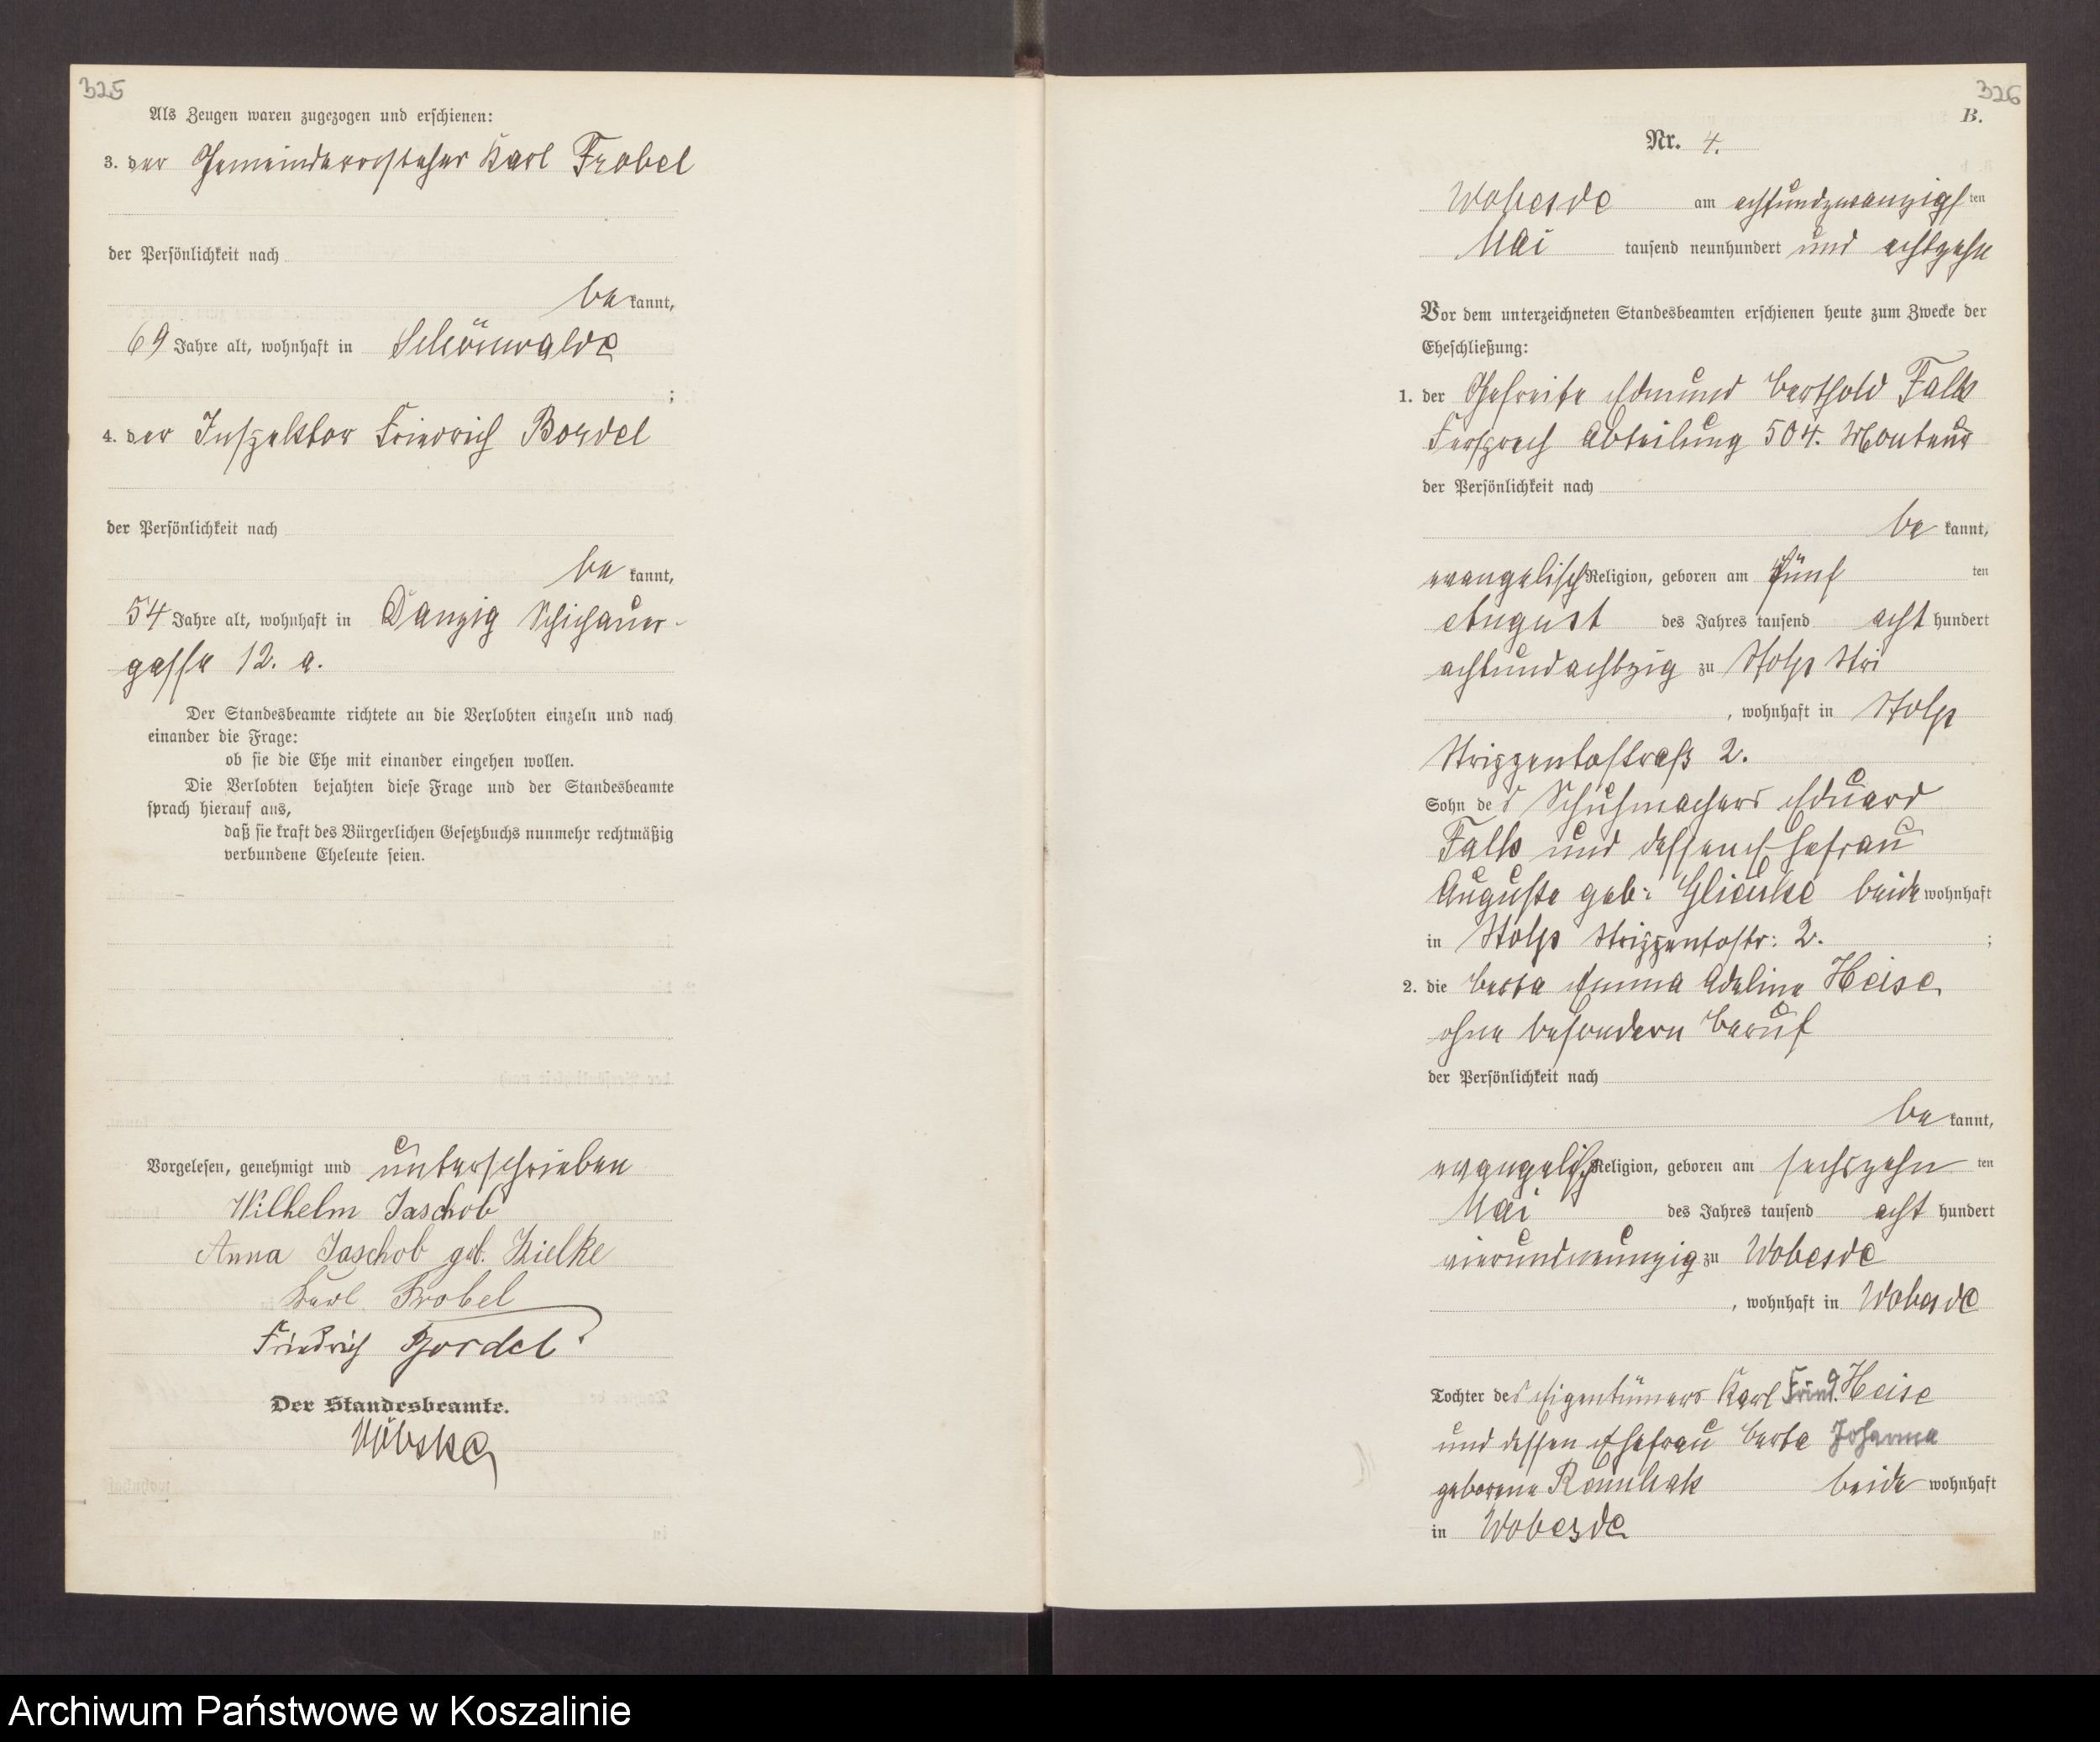 325
Als Zeugen waren zugezogen und erschienen:
3. der Gemeindevorsteher Karl Frobel
der Persönlichkeit nach
be kannt,
69 Jahre alt, wohnhaft in Schönwalde
;
4. der Inspektor Friedrich Bordel
der Persönlichkeit nach
be kannt,
54 Jahre alt, wohnhaft in Danzig Schichauer-
gasse 12. a.
Der Standesbeamte richtete an die Verlobten einzeln und nach
einander die Frage:
ob sie die Ehe mit einander eingehen wollen.
Die Verlobten bejahten diese Frage und der Standesbeamte
sprach hierauf aus,
daß sie kraft des Bürgerlichen Gesetzbuchs nunmehr rechtmäßig
verbundene Eheleute seien.
Vorgelesen, genehmigt und unterschrieben
Wilhelm Jaschob
Anna Jaschob geb. Zielke
Karl Frobel
Friedrich Bordel
Der Standesbeamte.
326
B.
Nr. 4.
Wobesde am achtundzwanzigs ten
Mai tausend neunhundert und achtzehn
Vor dem unterzeichneten Standesbeamten erschienen heute zum Zwecke der
Eheschließung:
1. der Gefreite Edmund Berthold Falk
Fersprech Abteilung 504. Monteur
der Persönlichkeit nach
be kannt,
evangelisch Religion, geboren am fünf ten
August des Jahres tausend acht hundert
achtundachtzig zu Stolp
, wohnhaft in Stolp
2.
Sohn des Schuhmachers Eduard
Falk und dessen Ehefrau
Auguste geb: beide wohnhaft
in Stolp 2. ;
2. die Berta Emma Adeline Heise
ohne besondern Beruf
der Persönlichkeit nach
be kannt,
evangelisch Religion, geboren am sechszehn ten
Mai des Jahres tausend acht hundert
vierundneunzig zu Wobesde
, wohnhaft in Wobesde
Tochter des Eigentümers Karl Fried. Heise
und dessen Ehefrau Berta Johanna
geborene beide wohnhaft
in Wobesde
Archiwum Państwowe w Koszalinie